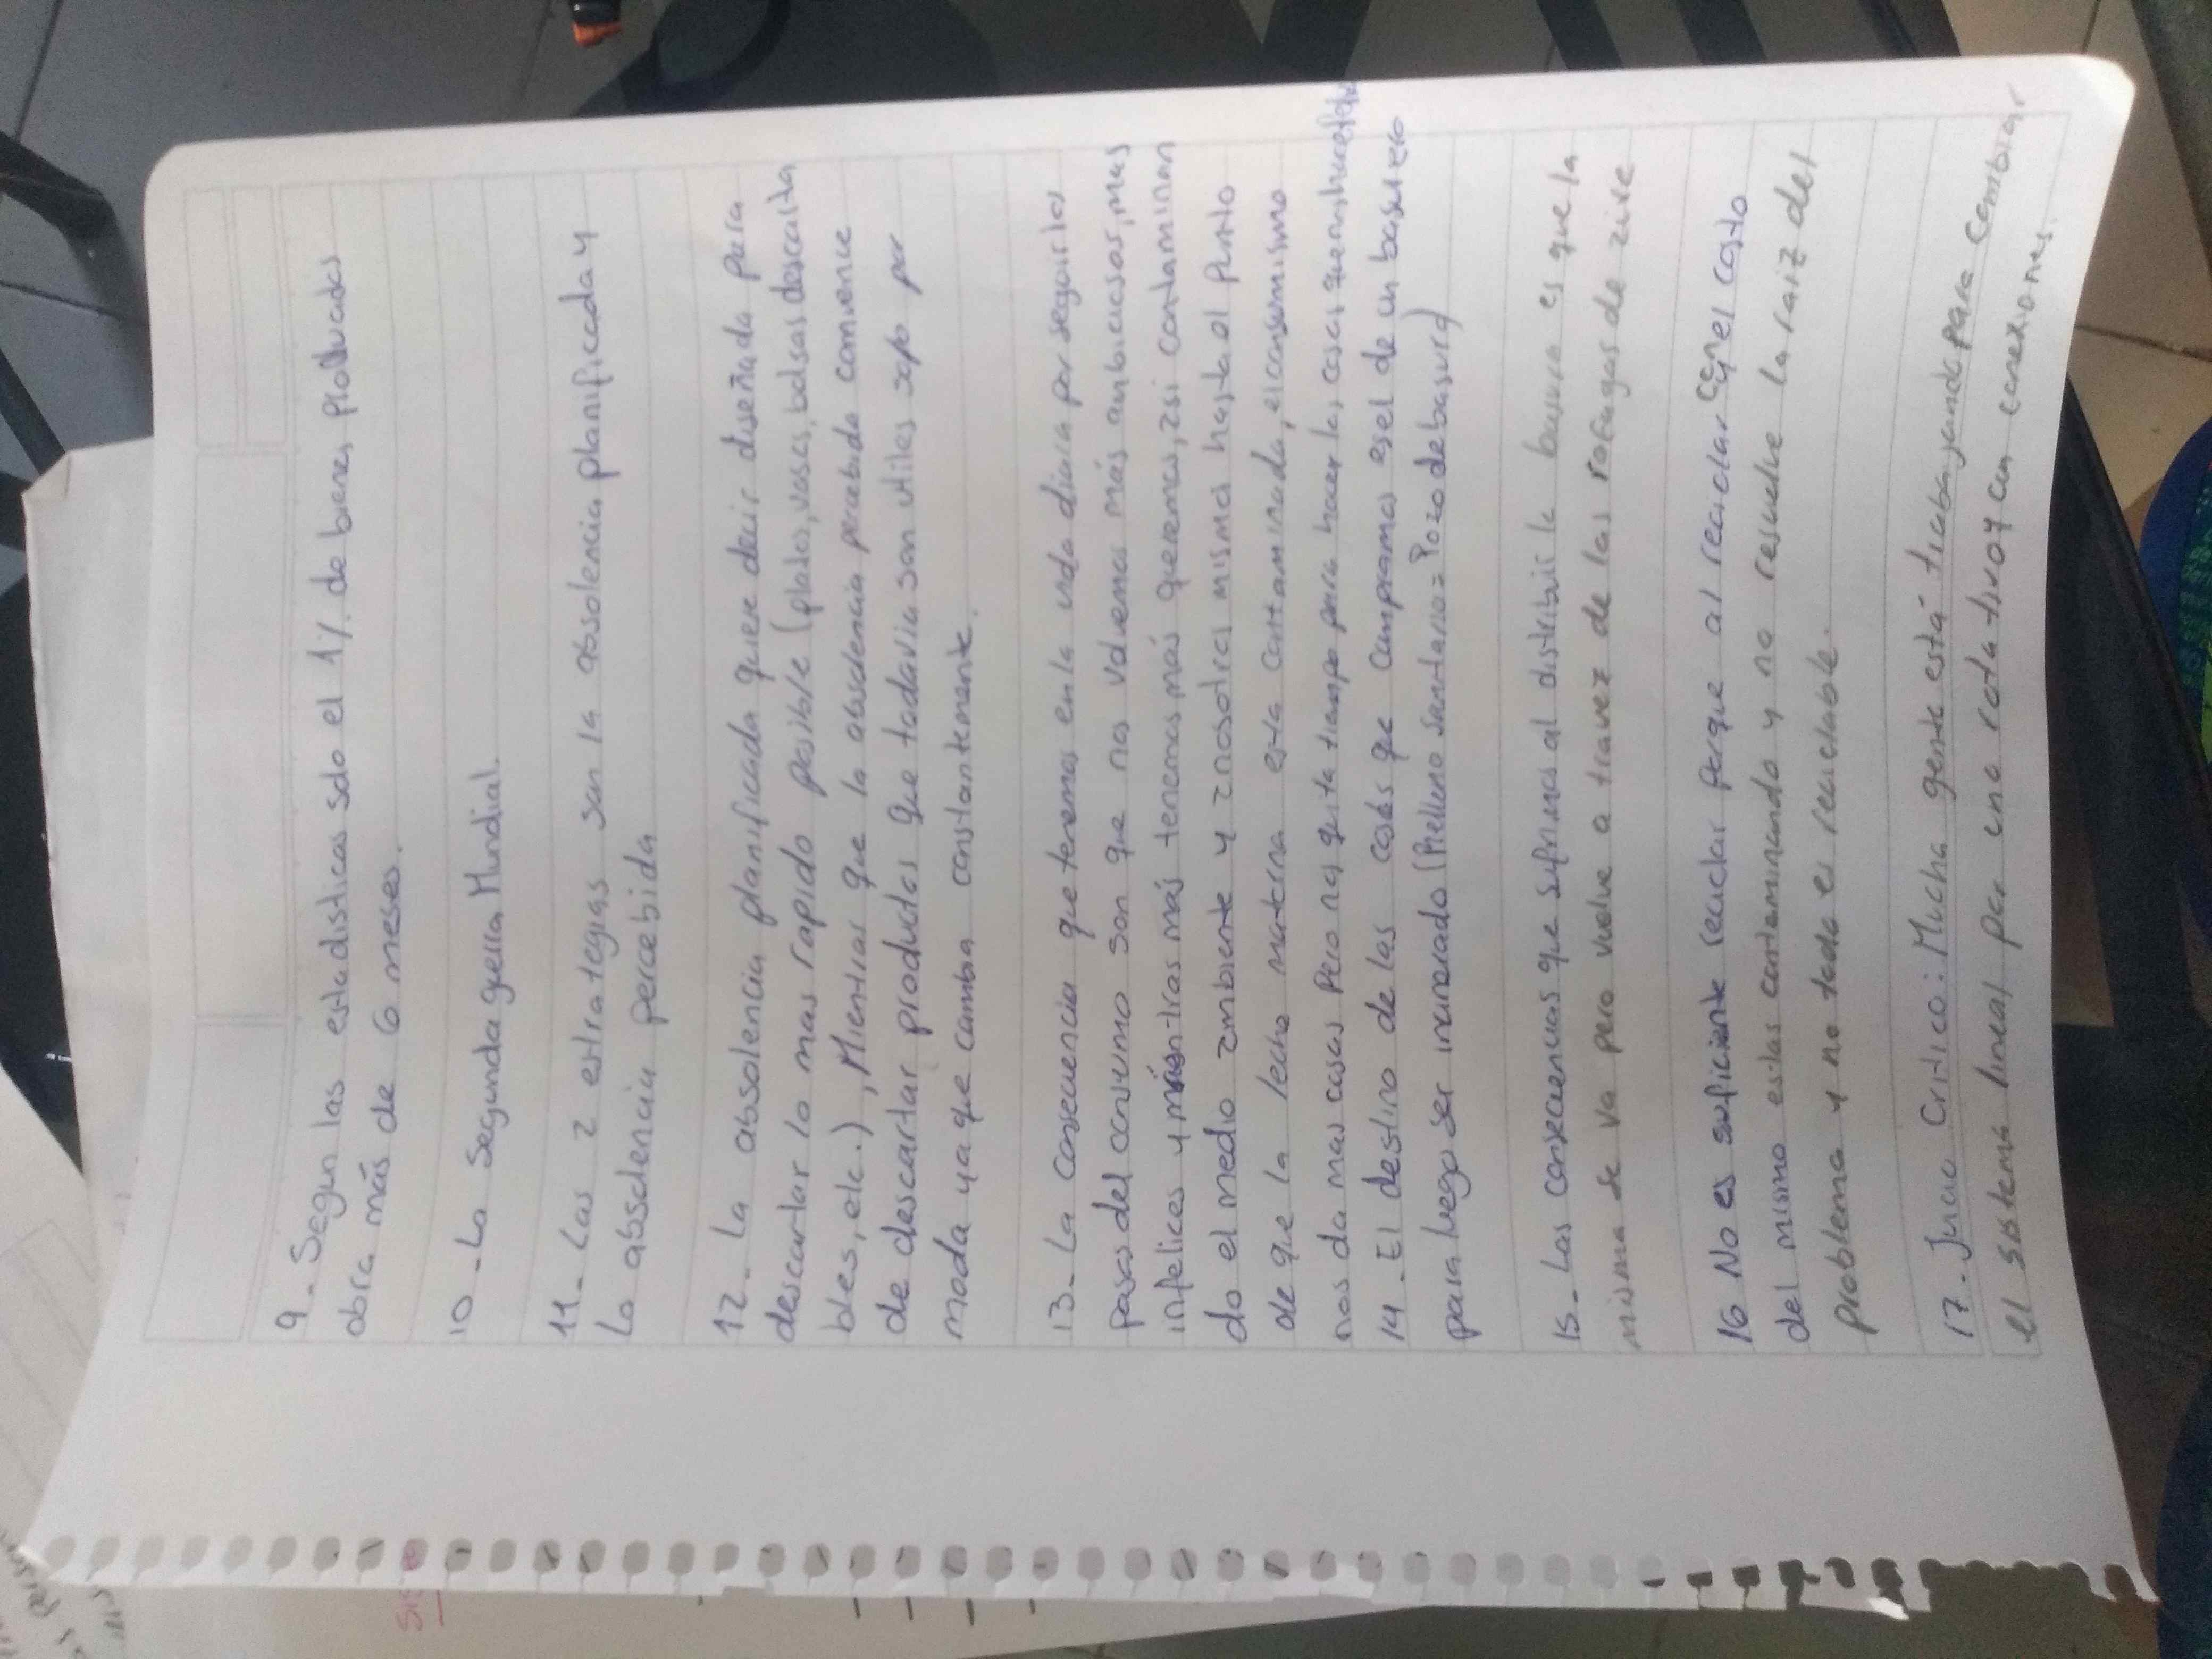 9.- Segun las estadisticas solo el 1% de bienes producidos
obra más de 6 meses.
10.- La Segunda guerra Mundial.
11.- Las 2 estrategias son la obsolencia planificada y
La obsolencia percebida
12.- La obsolencia planificada quiere decir diseñada para
descartar lo mas rapido posible (platos, vasos, bolsas descarta
bles, etc.), Mientras que la obsolencia percebida convence
de descartar productos que todavia son utiles solo por
moda ya que cambia constantemente.
13.- La consecuencia que tenemos en la vida diaria por seguir los
pasos del consumo son que nos volvemos más ambiciosos, mas
infelices y mientras más tenemos más queremos, asi contaminan
do el medio ambiente y a nosotros mismos hasta el punto
de que la leche materna esta contaminada, el consumismo
nos da mas cosas Pero nos quita tiempo para hacer las cosas que
14.- El destino de las cosas que compramos es el de un basurero
para luego ser incinerado (Relleno Sanitario = Pozo de basura)
15.- Las consecuencias que sufrimos al distribuir la basura es que la
misma se va pero vuelve a travez de las rafagas de aire
16 No es suficiente reciclar porque al reciclar con el costo
del mismo estas contaminando y no resuelve la raiz del
problema y no todo es reciclable.
17.- Juicio Critico: Mucha gente está trabajando para cambiar
el sistema lineal por uno rotativo y con conexiones.